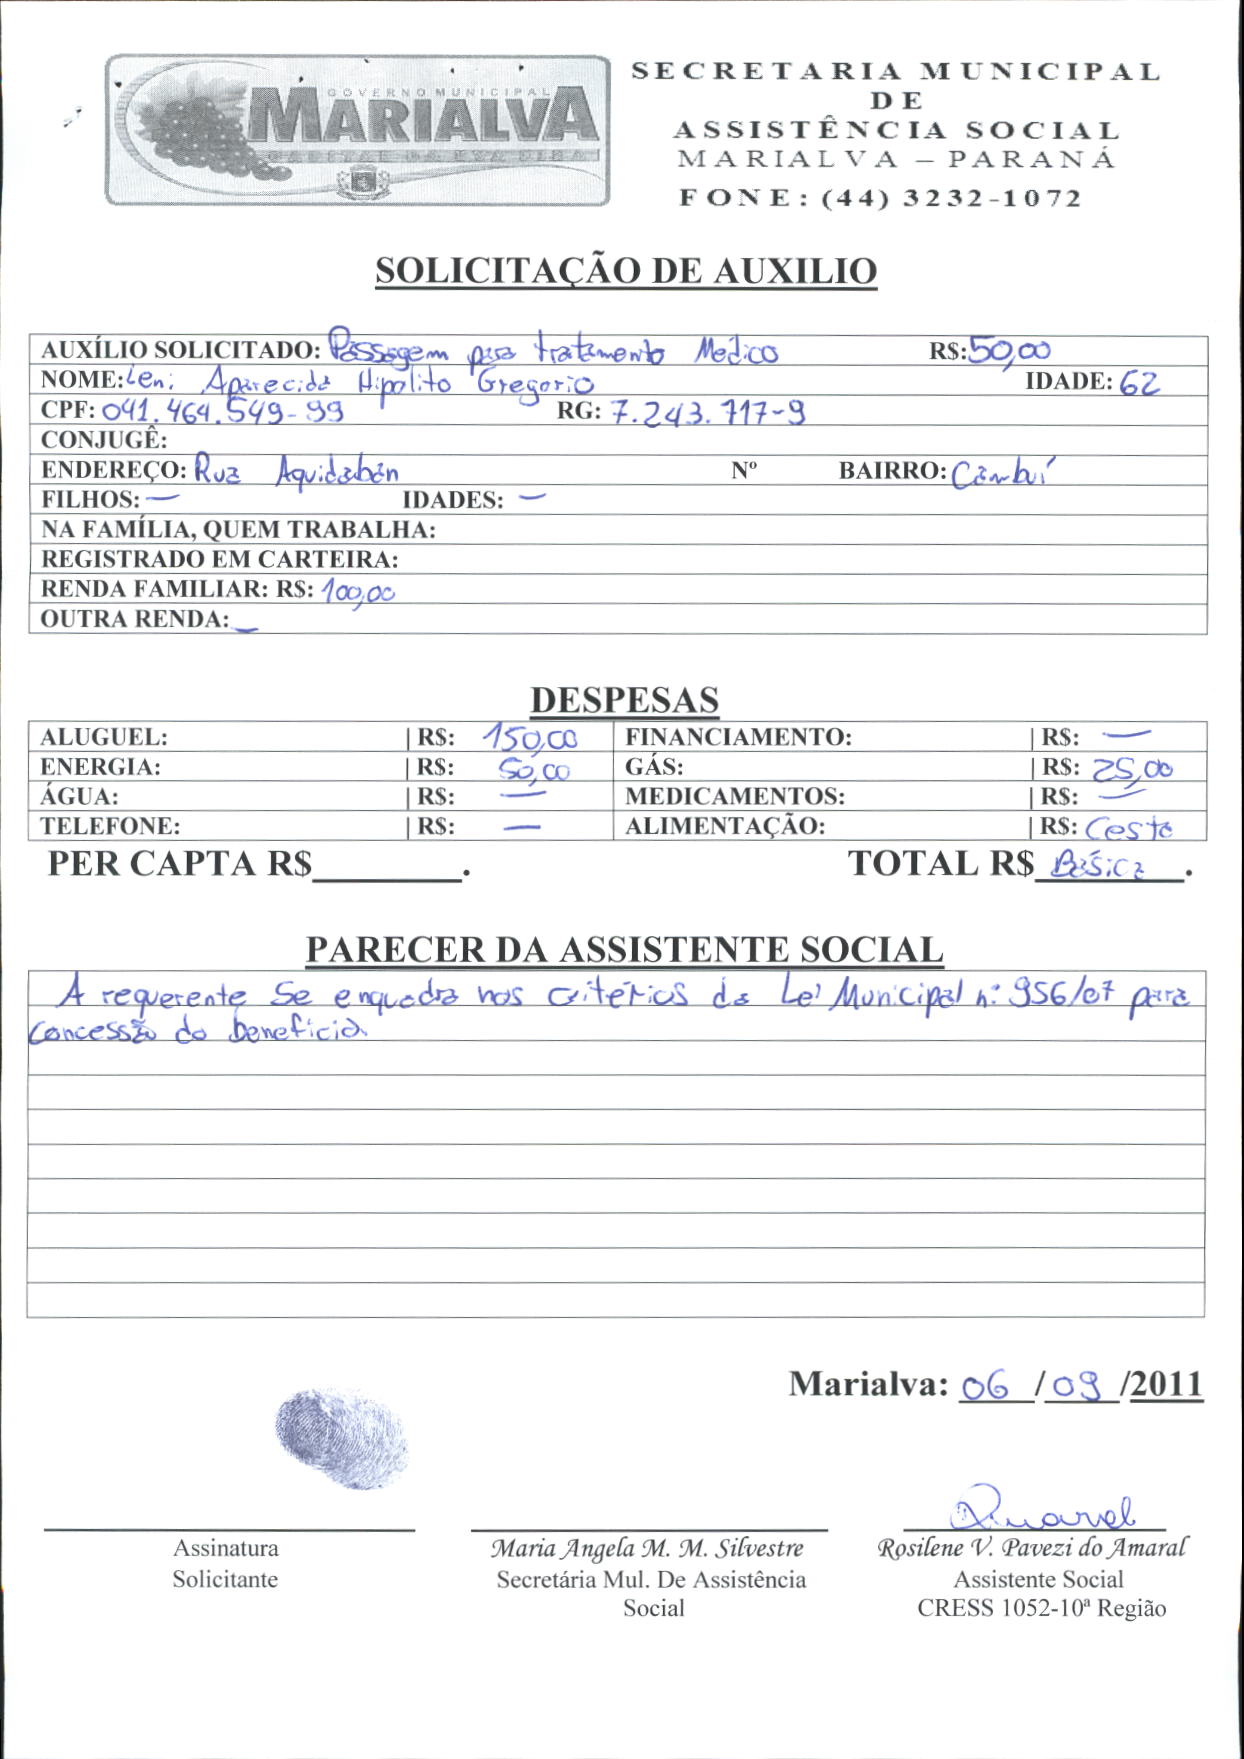 GOVERNO MUNICIPAL
MARIALVA
CAPITAL DA UVA FINA
SECRETARIA MUNICIPAL
DE
ASSISTÊNCIA SOCIAL
MARIALVA – PARANÁ
FONE: (44) 3232-1072
SOLICITAÇÃO DE AUXILIO
AUXÍLIO SOLICITADO: Passagem para tratamento Medico R$: 50,00
NOME: Leni Aparecida Hipolito Gregorio IDADE: 62
CPF: 041.464.549-99 RG: 7.243.717-9
CONJUGÊ:
ENDEREÇO: Rua Aquidaban Nº BAIRRO: Cambuí
FILHOS: — IDADES: —
NA FAMÍLIA, QUEM TRABALHA:
REGISTRADO EM CARTEIRA:
RENDA FAMILIAR: R$: 100,00
OUTRA RENDA: —
DESPESAS
ALUGUEL: | R$: 150,00 FINANCIAMENTO: | R$: —
ENERGIA: | R$: 50,00 GÁS: | R$: 25,00
ÁGUA: | R$: — MEDICAMENTOS: | R$: —
TELEFONE: | R$: — ALIMENTAÇÃO: | R$: Cesta
PER CAPTA R$________. TOTAL R$ Básica .
PARECER DA ASSISTENTE SOCIAL
A requerente se enquadra nos critérios da Lei Municipal nº 956/07 para
concessão do benefício.
Marialva: 06 / 09 /2011
Assinatura
Solicitante
Maria Angela M. M. Silvestre
Secretária Mul. De Assistência
Social
Rosilene V. Pavezi do Amaral
Assistente Social
CRESS 1052-10ª Região